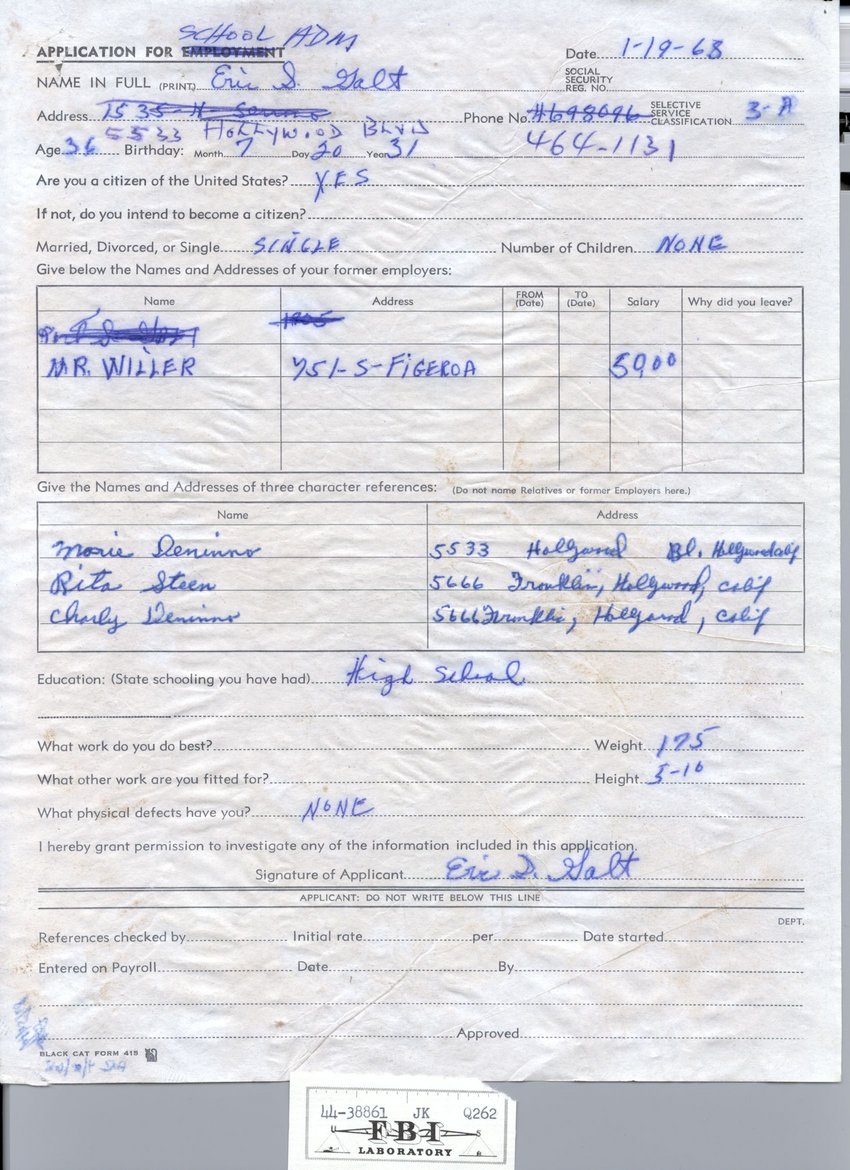 SCHOOL ADM
APPLICATION FOR EMPLOYMENT Date 1-19-68
NAME IN FULL (PRINT) Eric S. Galt SOCIAL SECURITY REG. NO.
Address 1535 N Phone No. #698096 SELECTIVE SERVICE CLASSIFICATION 3-A
5533 HOLLYWOOD BLVD 464-1131
Age 36 Birthday: Month 7 Day 20 Year 31
Are you a citizen of the United States? YES
If not, do you intend to become a citizen?
Married, Divorced, or Single SINGLE Number of Children NONE
Give below the Names and Addresses of your former employers:
Name Address FROM (Date) TO (Date) Salary Why did you leave?
MR. WILLER 751-S-FIGEROA 5900
Give the Names and Addresses of three character references: (Do not name Relatives or former Employers here.)
Name Address
Marie Deninno 5533 Hollywood Bl. Hollywood calif
Rita Steen 5666 Franklin, Hollywood, calif
Charly Deninno 5666 Franklin, Hollywood, calif
Education: (State schooling you have had) High School
What work do you do best? Weight 175
What other work are you fitted for? Height 5-10
What physical defects have you? NONE
I hereby grant permission to investigate any of the information included in this application.
Signature of Applicant Eric S. Galt
APPLICANT: DO NOT WRITE BELOW THIS LINE
DEPT.
References checked by Initial rate per Date started
Entered on Payroll Date By
Approved
BLACK CAT FORM 415
44-38861 JK Q262
U S
FBI
LABORATORY